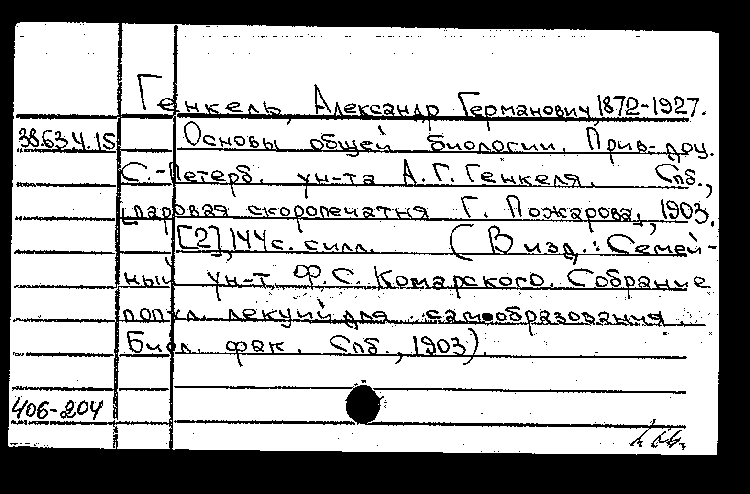 Генкель, Александр Германович, 1872-1927.
38.634.15 Основы общей биологии. Прив.-доц.
С.-Петерб. ун-та А.Г. Генкеля. Спб.,
паровая скоропечатня Г. Пожарова, 1903.
[2], 144 с. с илл. (В изд.: Семей-
ный ун-т Ф.С. Комарского. Собрание
попул. лекций для самообразования.
Биол. фак. Спб., 1903).
406-204